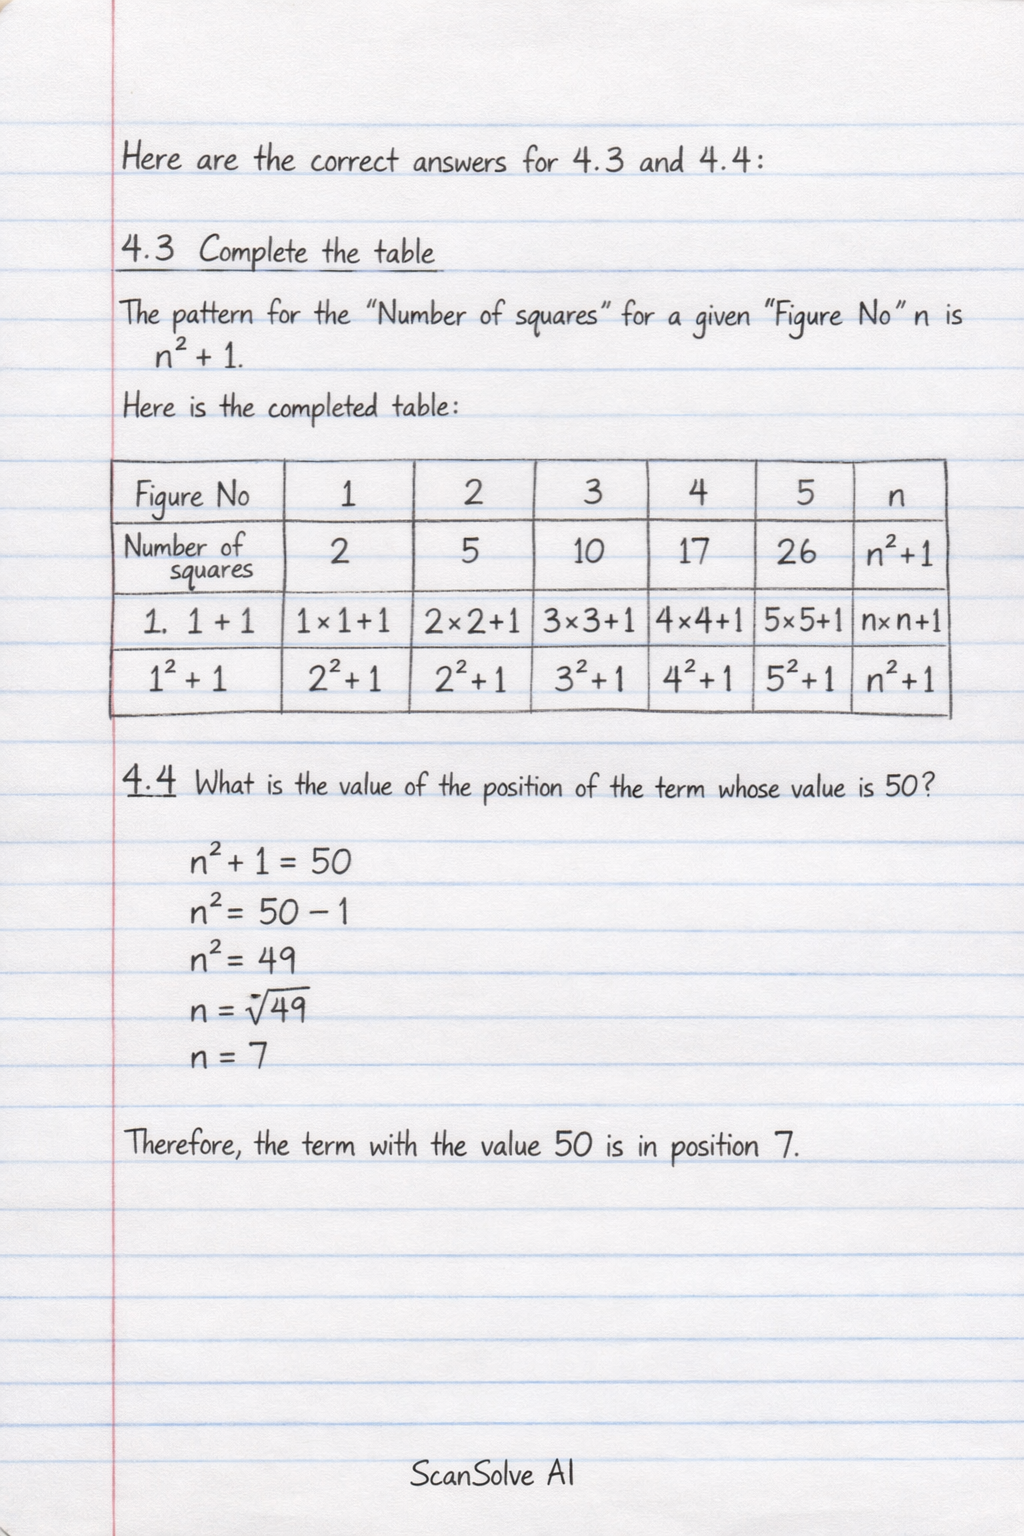 Here are the correct answers for 4.3 and 4.4:
4.3 Complete the table
The pattern for the "Number of squares" for a given "Figure No" n is
n² + 1.
Here is the completed table:
Figure No 1 2 3 4 5 n
Number of squares 2 5 10 17 26 n²+1
1. 1 + 1 1×1+1 2×2+1 3×3+1 4×4+1 5×5+1 n×n+1
1² + 1 2²+1 2²+1 3²+1 4²+1 5²+1 n²+1
4.4 What is the value of the position of the term whose value is 50?
n² + 1 = 50
n² = 50 – 1
n² = 49
n = √49
n = 7
Therefore, the term with the value 50 is in position 7.
ScanSolve AI